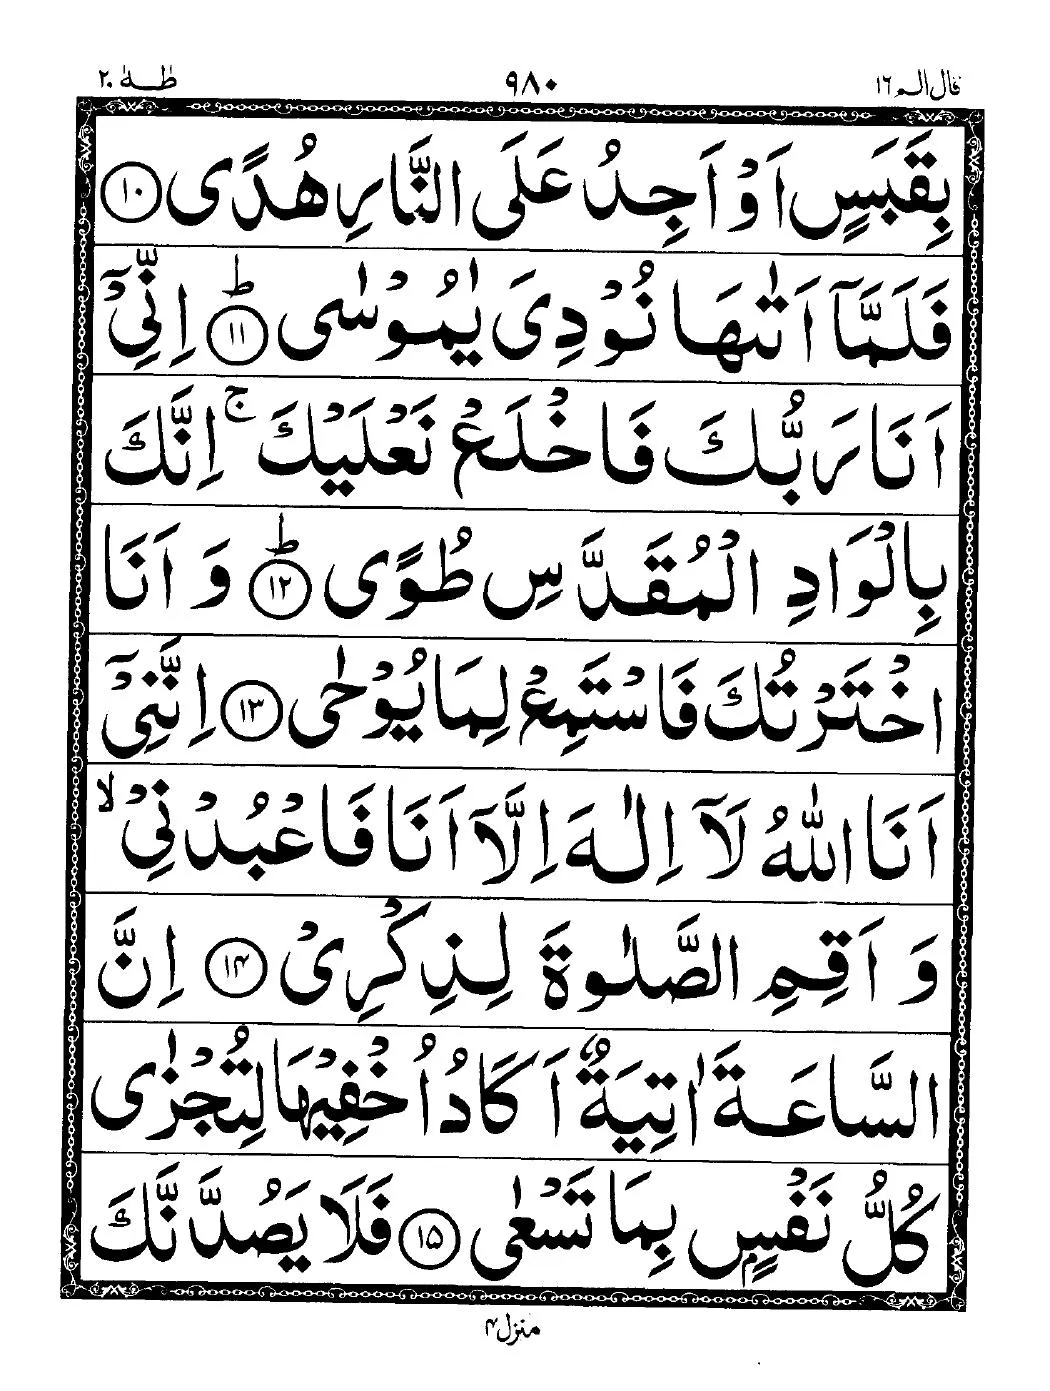 قال الم ١٦ ٩٨٠ طٰهٰ ٢٠
بِقَبَسٍ اَوْ اَجِدُ عَلَى النَّارِ هُدًى ﴿۱۰﴾
فَلَمَّآ اَتٰىهَا نُوْدِىَ يٰمُوْسٰى ؕ ﴿۱۱﴾ اِنِّىْٓ
اَنَا رَبُّكَ فَاخْلَعْ نَعْلَيْكَ ۚ اِنَّكَ
بِالْوَادِ الْمُقَدَّسِ طُوًى ؕ ﴿۱۲﴾ وَ اَنَا
اخْتَرْتُكَ فَاسْتَمِعْ لِمَا يُوْحٰى ﴿۱۳﴾ اِنَّنِىْٓ
اَنَا اللّٰهُ لَآ اِلٰهَ اِلَّآ اَنَا فَاعْبُدْنِىْ ۙ
وَ اَقِمِ الصَّلٰوةَ لِذِكْرِىْ ﴿۱۴﴾ اِنَّ
السَّاعَةَ اٰتِيَةٌ اَكَادُ اُخْفِيْهَا لِتُجْزٰى
كُلُّ نَفْسٍۭ بِمَا تَسْعٰى ﴿۱۵﴾ فَلَا يَصُدَّنَّكَ
منزل ۴